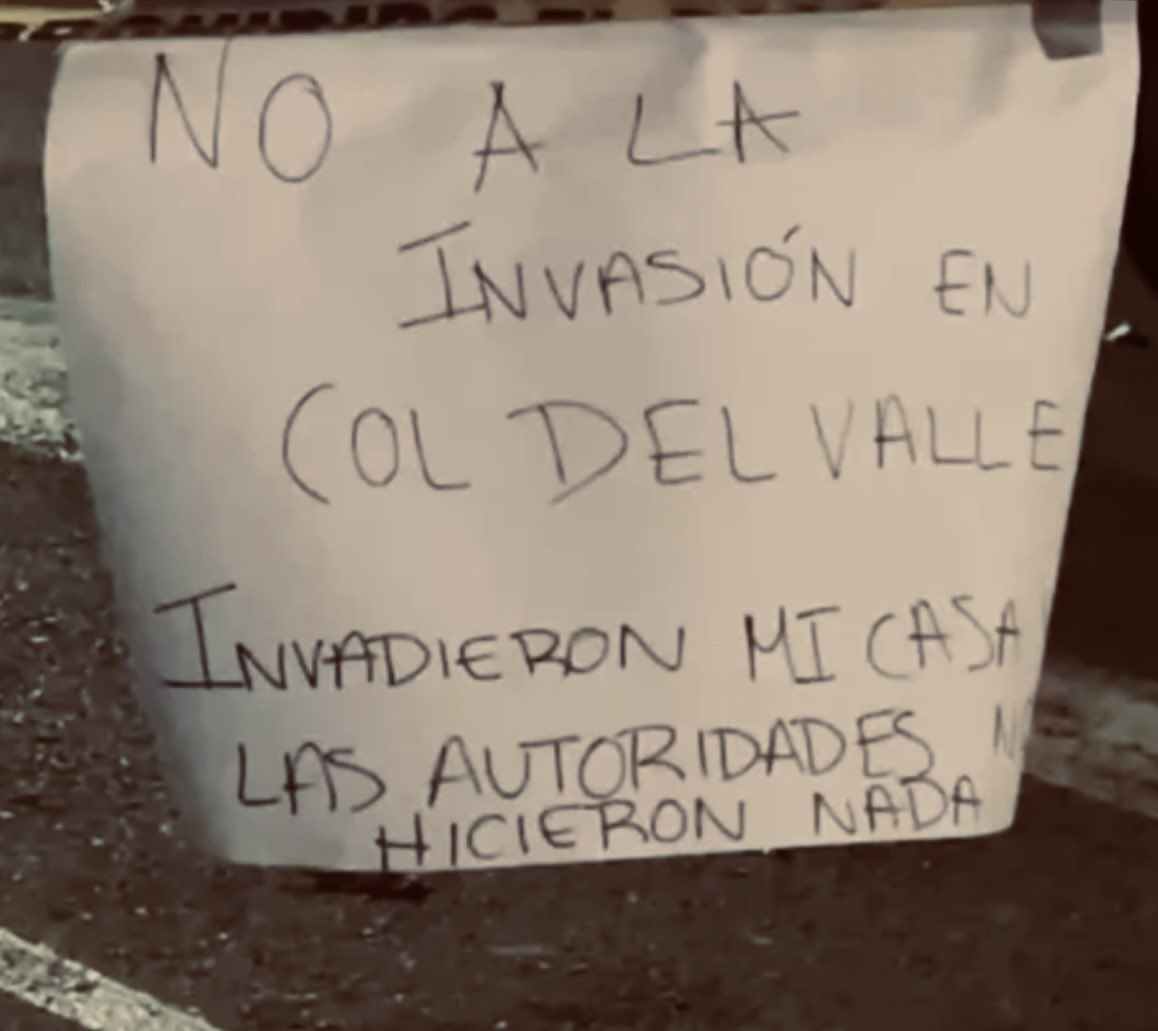 NO A LA
INVASIÓN EN
COL DEL VALLE
INVADIERON MI CASA
LAS AUTORIDADES NO
HICIERON NADA